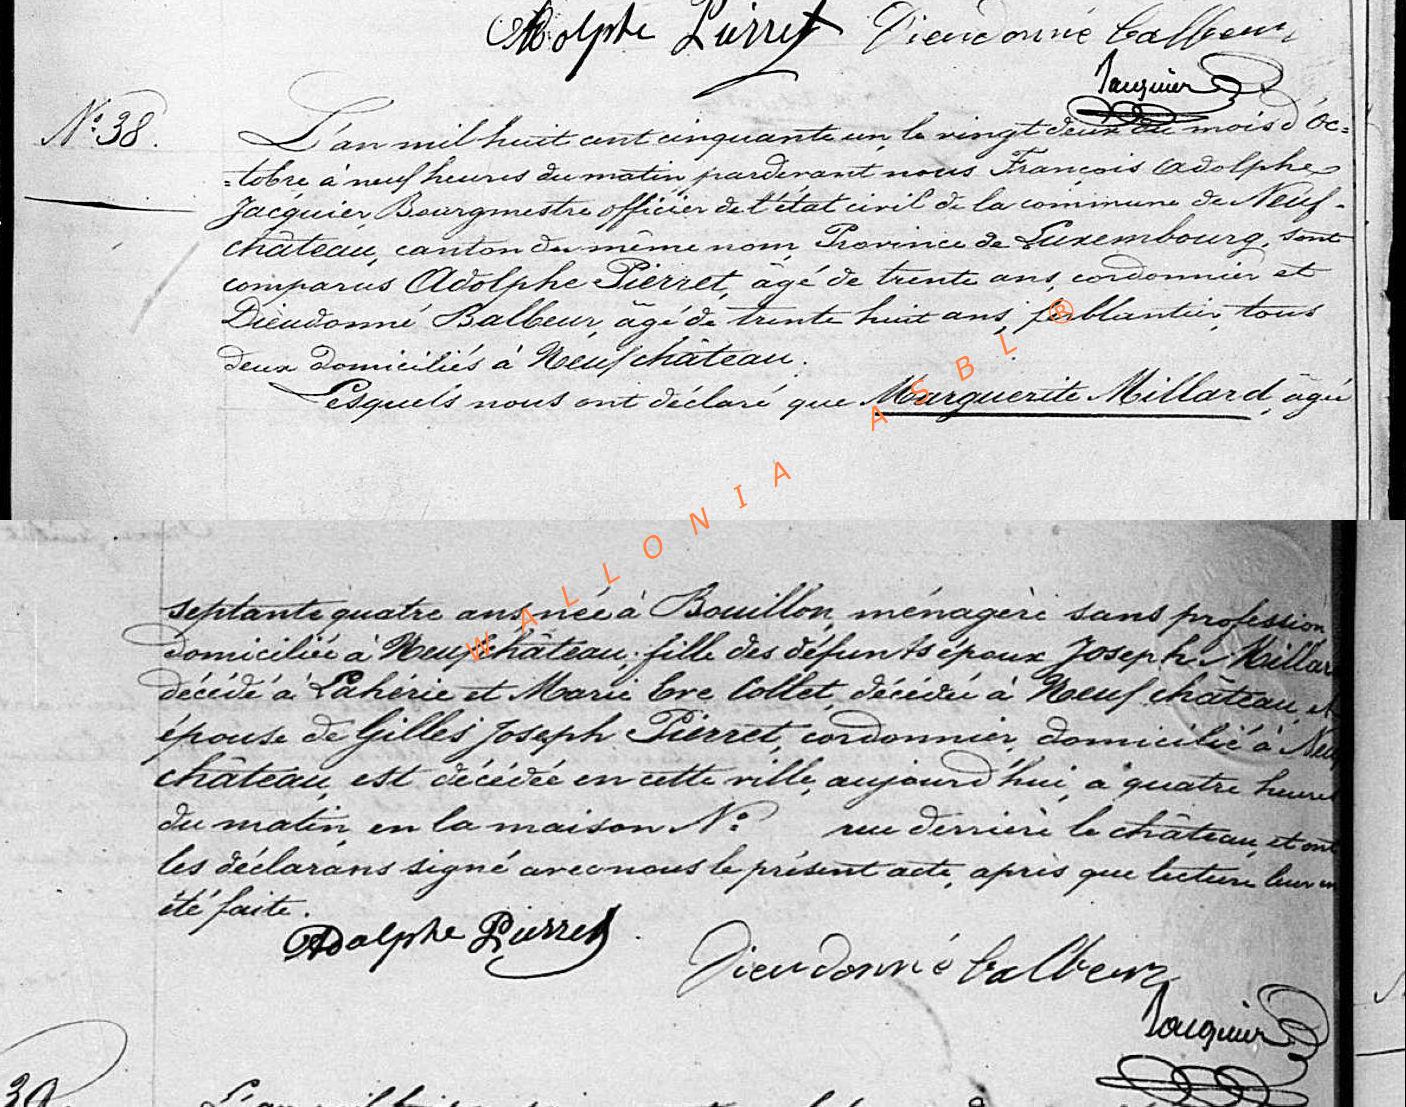 Adolphe Pierret Dieudonné Balbeur
Jacquier
N.º 38.
L'an mil huit cent cinquante un, le vingt deux du mois d'Oc=
=tobre à neuf heures du matin, pardevant nous François Adolphe
Jacquier, Bourgmestre officier de l'état civil de la commune de Neuf-
château, canton du même nom, Province de Luxembourg, sont
comparus Adolphe Pierret, âgé de trente ans, cordonnier et
Dieudonné Balbeur, âgé de trente huit ans, ferblantier, tous
deux domiciliés à Neufchâteau.
Lesquels nous ont déclaré que Marguerite Millard, âgée
WALLONIA ASBL ®
septante quatre ans, née à Bouillon, ménagère sans profession
domiciliée à Neufchâteau, fille des défunts époux Joseph Millar
décédé à Lahérie et Marie Eve Collet, décédée à Neufchâteau, et
épouse de Gilles Joseph Pierret, cordonnier, domicilié à Neuf
château, est décédée en cette ville, aujourd'hui, à quatre heures
du matin, en la maison N.º rue derrière le château, et ont
les déclarans signé avec nous le présent acte, après que lecture leur en
été faite.
Adolphe Pierret
Dieudonné Balbeur
Jacquier
39.
L'an mil